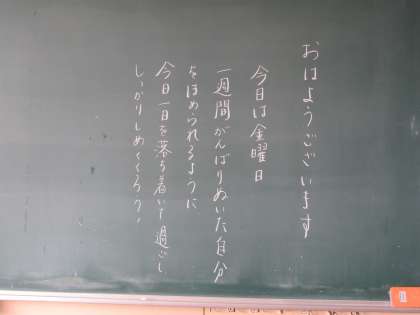 おはようございます
今日は金曜日
一週間がんばりぬいた自分
をほめられるように
今日一日を落ち着いて過ごし
しっかりしめくくろう。